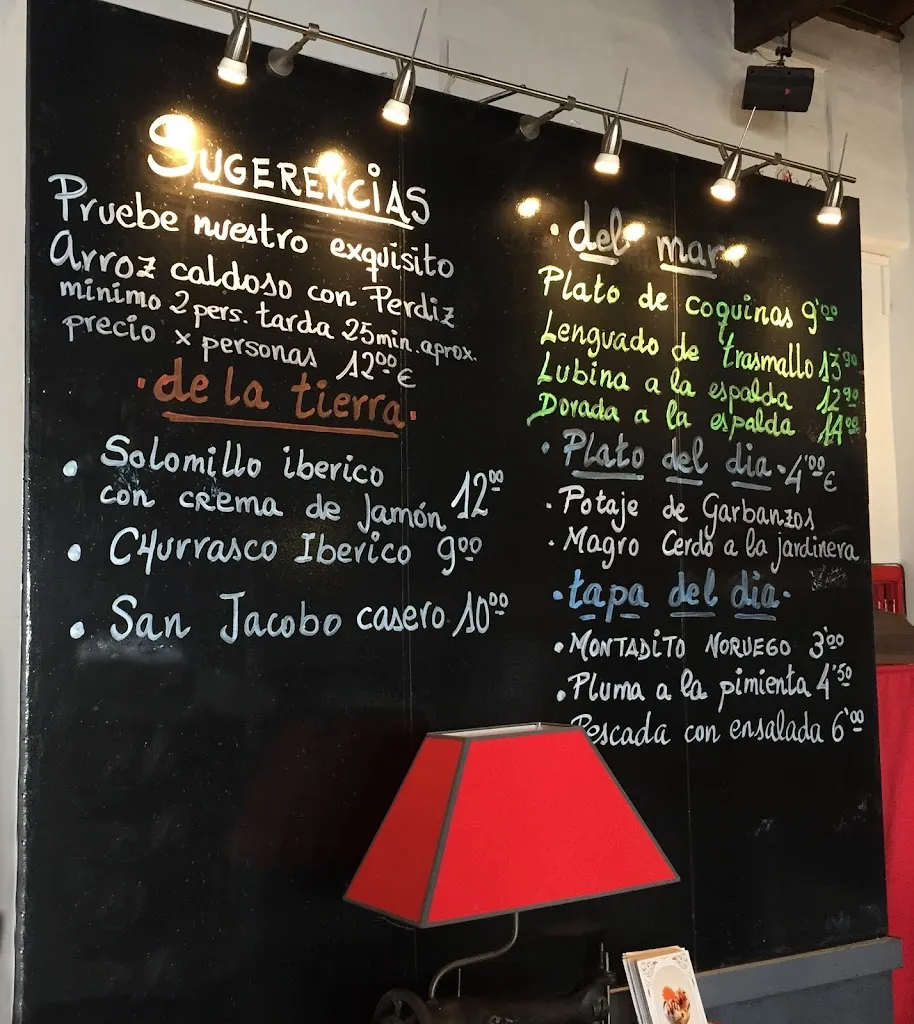 SUGERENCIAS
Pruebe nuestro exquisito
Arroz caldoso con Perdiz
minimo 2 pers. tarda 25min. aprox.
precio x personas 12⁰⁰€
·de la tierra·
• Solomillo iberico
con crema de Jamón 12⁰⁰
• CHurrasco Iberico 9⁰⁰
• San Jacobo casero 10⁰⁰
· del mar ·
Plato de coquinas 9'⁰⁰
Lenguado de trasmallo 13'⁹⁰
Lubina a la espalda 12⁹⁰
Dorada a la espalda 14⁰⁰
· Plato del dia · 4'⁰⁰€
· Potaje de Garbanzos
· Magro Cerdo a la jardinera
·tapa del dia·
• MONTADITO NORUEGO 3'⁰⁰
• Pluma a la pimienta 4'⁵⁰
Pescada con ensalada 6'⁰⁰